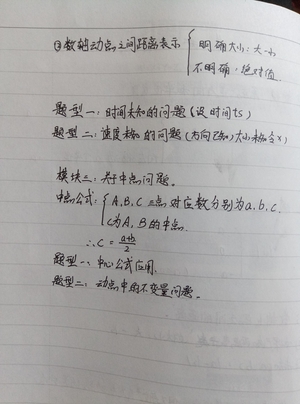 ③数轴动点之间距离表示 { 明确大小：大-小
不明确：绝对值
题型一：时间未知的问题（设时间ts）
题型二：速度未知的问题（方向已知）大小未知含x）
模块三：关于中点问题。
中点公式：{ A,B,C 三点对应数分别为a,b,c.
C为A,B的中点.
∴ c = (a+b)/2
题型一、中心公式应用.
题型二：动点中的不变量问题。